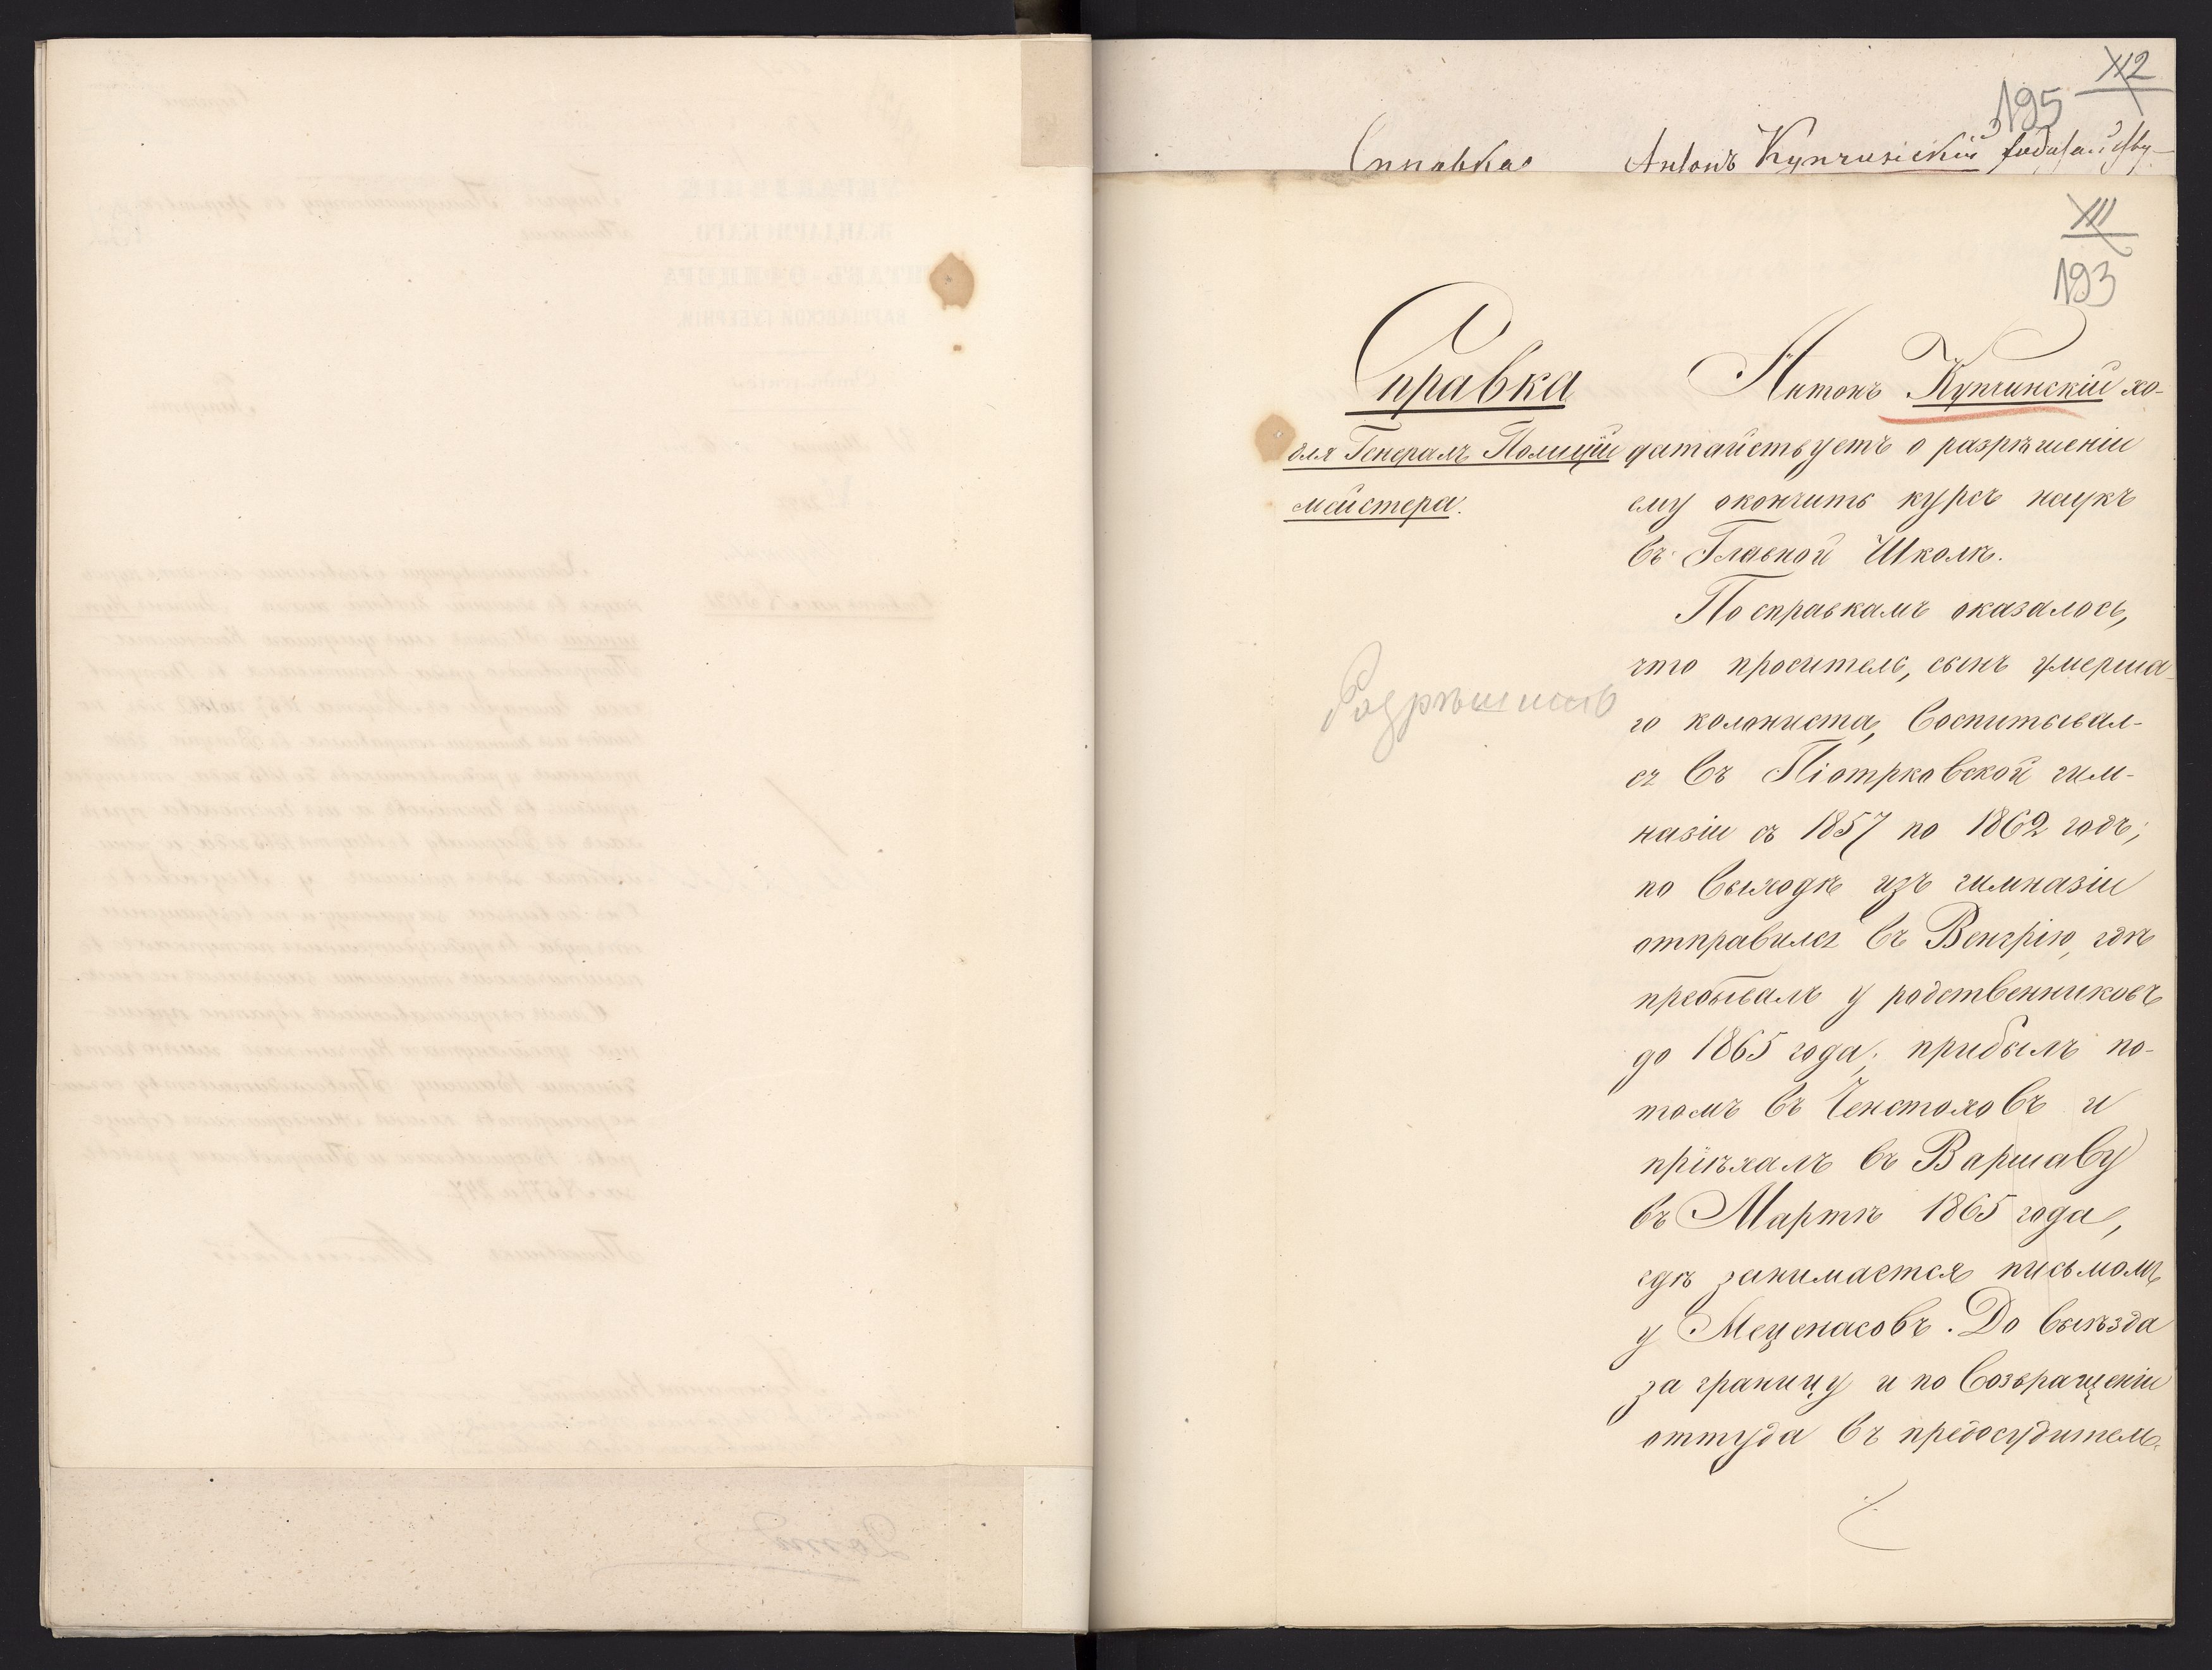 XII
195
Справка Антонъ Купчинскій ходатайству-
XIII
193
Справка
для Генералъ Полицій
мейстера.
Разрѣшить
Антонъ Купчинскій хо-
датайствуетъ о разрѣшеніи
ему окончить курсъ наукъ
въ Главной Школѣ.
По справкамъ оказалось,
что проситель, сынъ умерша-
го колониста, воспитывал-
ся въ Піотрковской гим-
назіи съ 1857 по 1862 годъ;
по выходѣ изъ гимназіи
отправился въ Венгрію, гдѣ
пребывалъ у родственниковъ
до 1865 года; прибылъ по-
томъ въ Ченстоховъ и
пріѣхалъ въ Варшаву
въ Мартѣ 1865 года,
гдѣ занимается письмомъ
у Меценасовъ. До выѣзда
за границу и по возвращеніи
оттуда въ предосудитель-